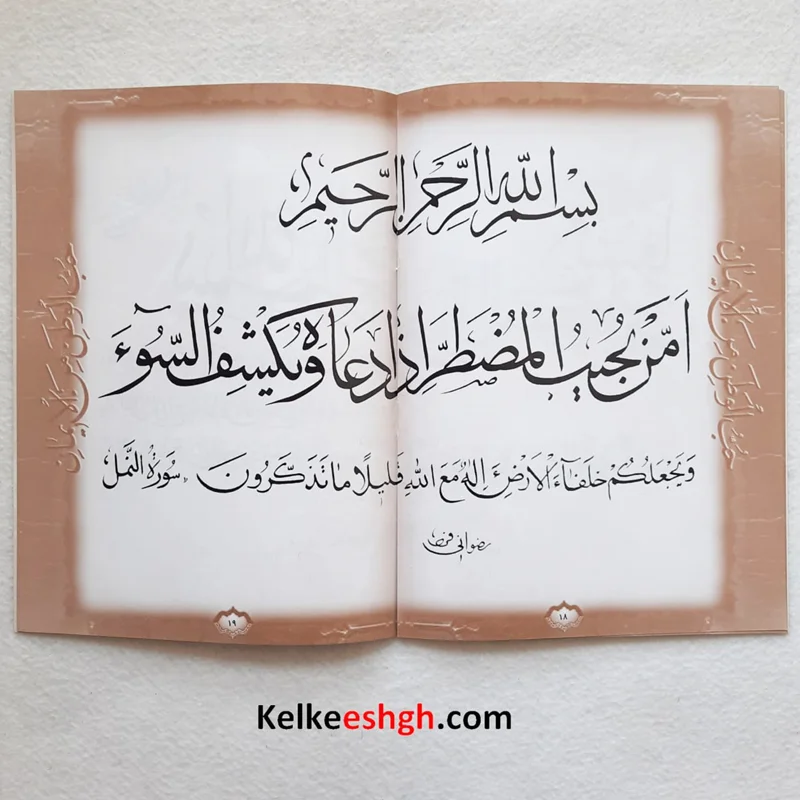 بِسْمِ اللهِ الرَّحْمنِ الرَّحيمِ
اَمَّنْ يُجيبُ الْمُضْطَرَّ اِذا دَعاهُ وَيَكْشِفُ السُّوٓءَ
وَيَجْعَلُكُمْ خُلَفآءَ الْاَرْضِ ءَاِلهٌ مَعَ اللهِ قَليلًا ما تَذَكَّرُونَ سُورَةُ النَّمل
رضوانی فرد
حُبُّ الْوَطَنِ مِنَ الْاِيمانِ
حُبُّ الْوَطَنِ مِنَ الْاِيمانِ
۱۸
۱۹
Kelkeeshgh.com